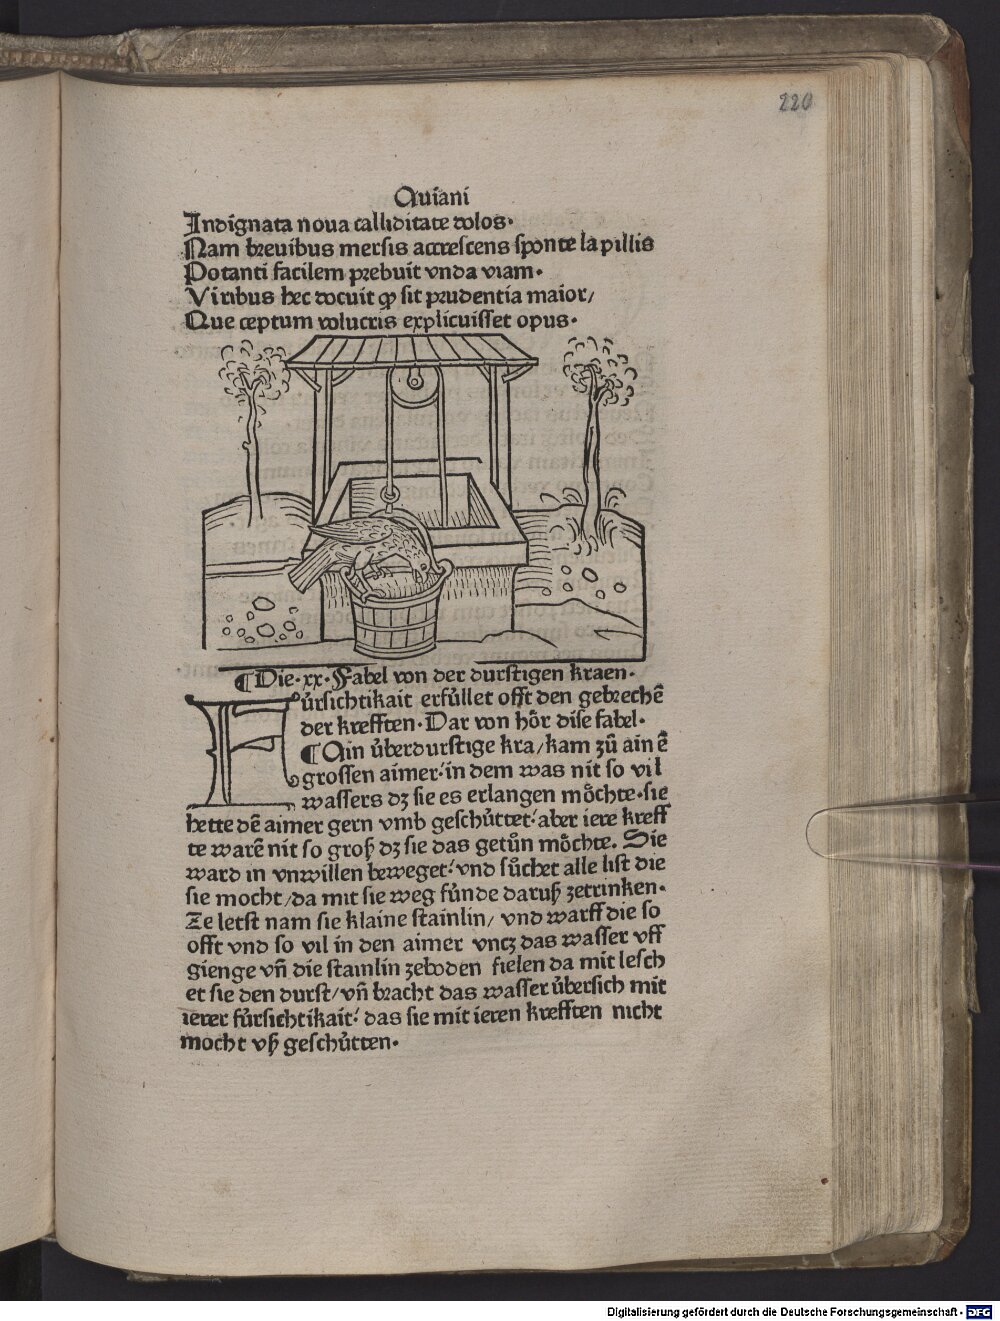 220
Auiani
Indignata noua calliditate dolos·
Nam breuibus mersis accrescens sponte lapillis
Potanti facilem prebuit vnda viam·
Viribus hec docuit ꝙ sit prudentia maior/
Que ceptum volucris explicuisset opus·
¶Die·xx·Fabel von der durstigen kraen·
Fúrsichtikait erfúllet offt den gebrechē
der krefften·Dar von hoͤr dise fabel·
¶Ain úberdurstige kra/kam zuͦ ainē
grossen aimer/in dem was nit so vil
wassers dz sie es erlangen moͤchte·sie
hette dē aimer gern vmb geschúttet/aber iere kreff
te warē nit so groß dz sie das getuͦn moͤchte. Sie
ward in vnwillen beweget/vnd suͦchet alle list die
sie mocht/da mit sie weg fúnde daruß zetrinken·
Ze letst nam sie klaine stainlin/ vnd warff die so
offt vnd so vil in den aimer vncz das wasser vff
gienge vn̄ die stainlin zeboden fielen da mit lesch
et sie den durst/vn̄ bracht das wasser úbersich mit
ierer fúrsichtikait/das sie mit ieren krefften nicht
mocht vß geschútten·
Digitalisierung gefördert durch die Deutsche Forschungsgemeinschaft - DFG